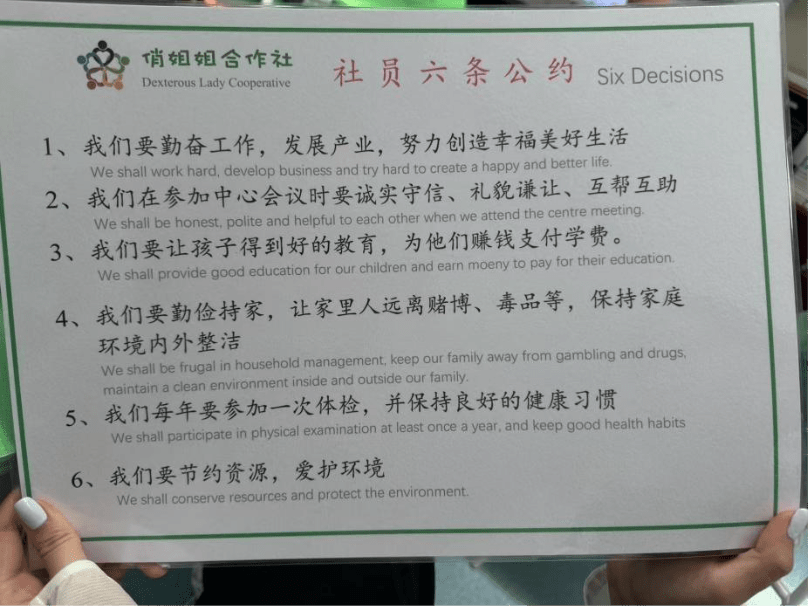 俏姐姐合作社
Dexterous Lady Cooperative
社员六条公约 Six Decisions
1、我们要勤奋工作，发展产业，努力创造幸福美好生活
We shall work hard, develop business and try hard to create a happy and better life.
2、我们在参加中心会议时要诚实守信、礼貌谦让、互帮互助
We shall be honest, polite and helpful to each other when we attend the centre meeting.
3、我们要让孩子得到好的教育，为他们赚钱支付学费。
We shall provide good education for our children and earn moeny to pay for their education.
4、我们要勤俭持家，让家里人远离赌博、毒品等，保持家庭
环境内外整洁
We shall be frugal in household management, keep our family away from gambling and drugs,
maintain a clean environment inside and outside our family.
5、我们每年要参加一次体检，并保持良好的健康习惯
We shall participate in physical examination at least once a year, and keep good health habits
6、我们要节约资源，爱护环境
We shall conserve resources and protect the environment.